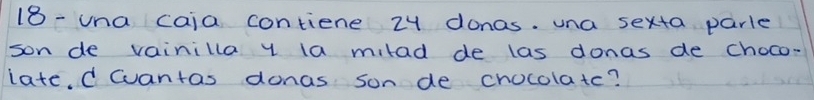 18- una caja contiene 24 donas. una sexta parte
son de vainilla y la mitad de las donas de choco-
late. ¿ Cuantas donas son de chocolate?